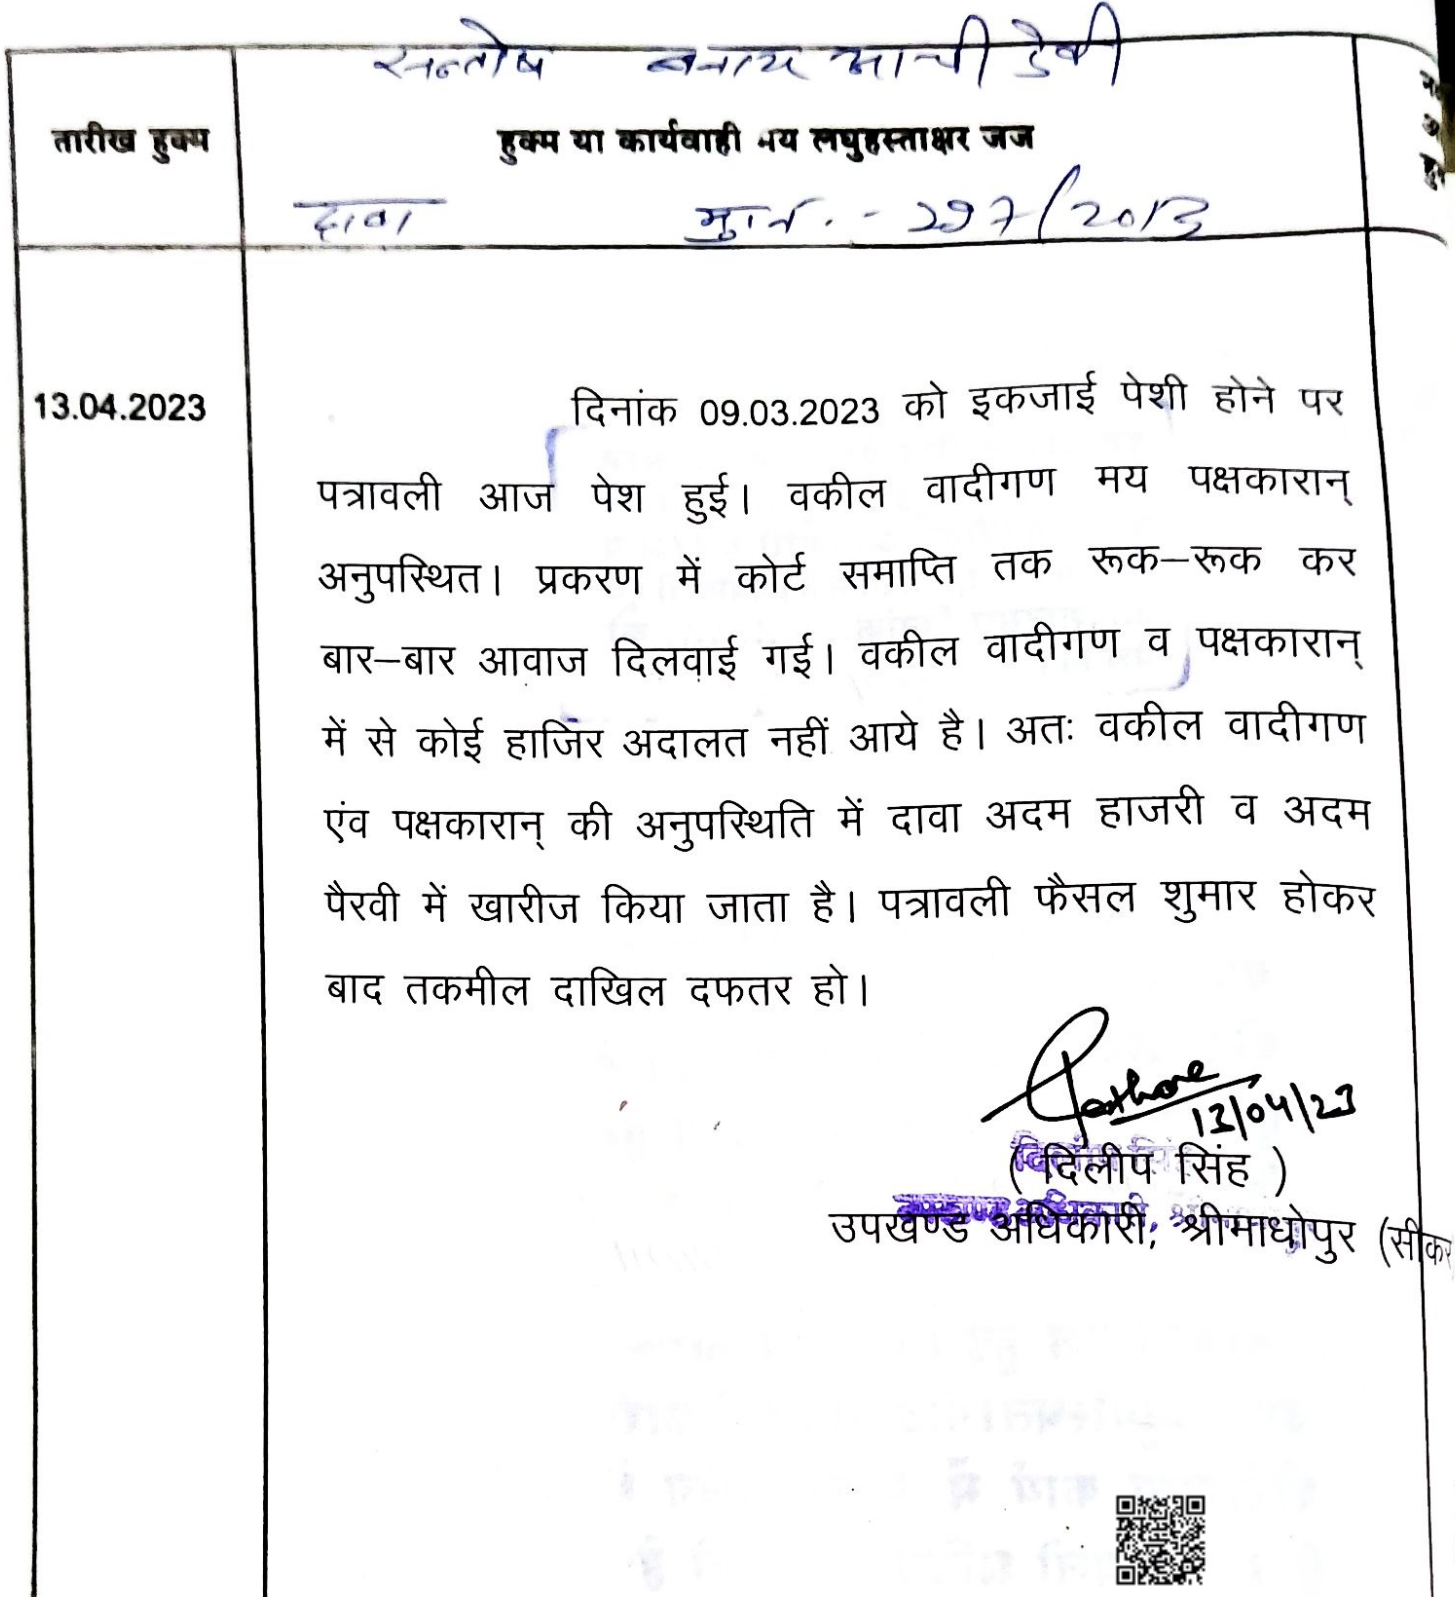 सन्तोष बनाम भाची देवी
तारीख हुक्म
हुक्म या कार्यवाही मय लघुहस्ताक्षर जज
दावा मु.न. - 297/2013
13.04.2023
दिनांक 09.03.2023 को इकजाई पेशी होने पर
पत्रावली आज पेश हुई। वकील वादीगण मय पक्षकारान्
अनुपस्थित। प्रकरण में कोर्ट समाप्ति तक रूक–रूक कर
बार–बार आवाज दिलवाई गई। वकील वादीगण व पक्षकारान्
में से कोई हाजिर अदालत नहीं आये है। अतः वकील वादीगण
एंव पक्षकारान् की अनुपस्थिति में दावा अदम हाजरी व अदम
पैरवी में खारीज किया जाता है। पत्रावली फैसल शुमार होकर
बाद तकमील दाखिल दफतर हो।
13/04/23
( दिलीप सिंह )
उपखण्ड अधिकारी, श्रीमाधोपुर (सीकर